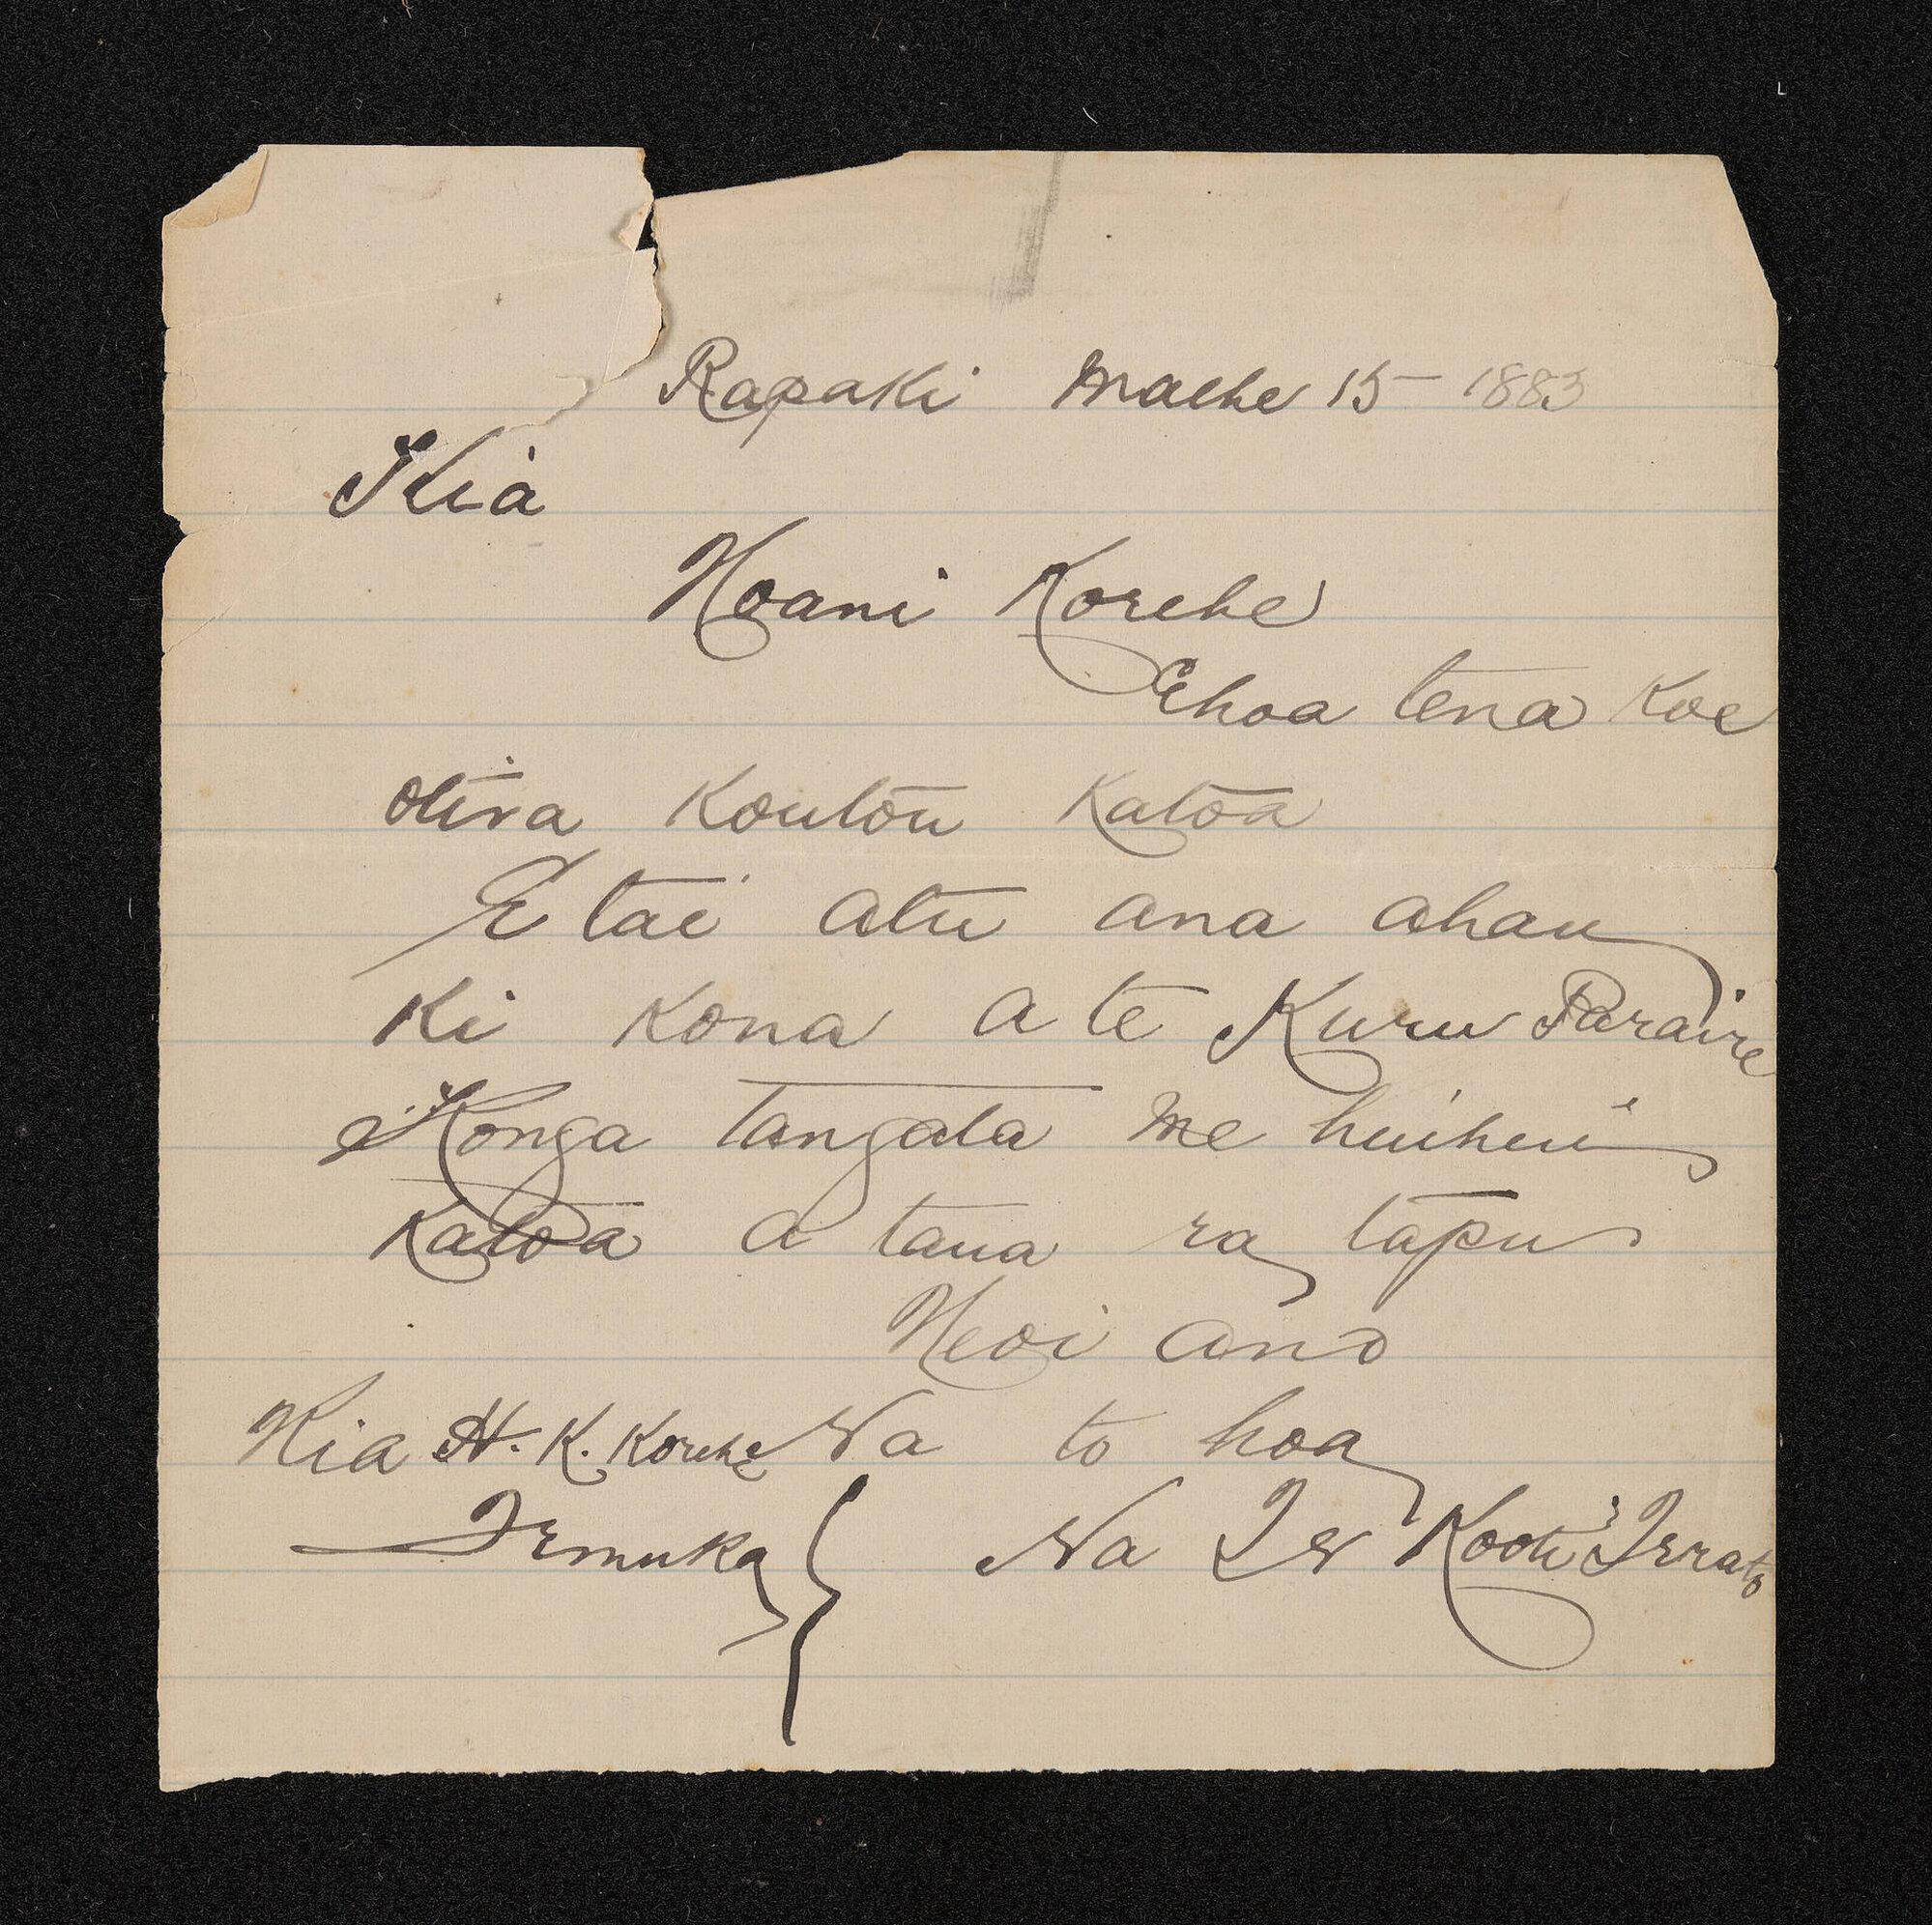 Rapaki Maehe 15 - 1883
Kia
Hoani Korehe
Ehoa tena Koe
otira Koutou Katoa
E tae atu ana ahau
Ki Kona a te Kuru Paraire
Konga tangata me huihui
Katoa a taua ra tapu
Heoi ano
Kia H. K. Korehe Na to hoa
Temuka } Na Te Kooti Te rato